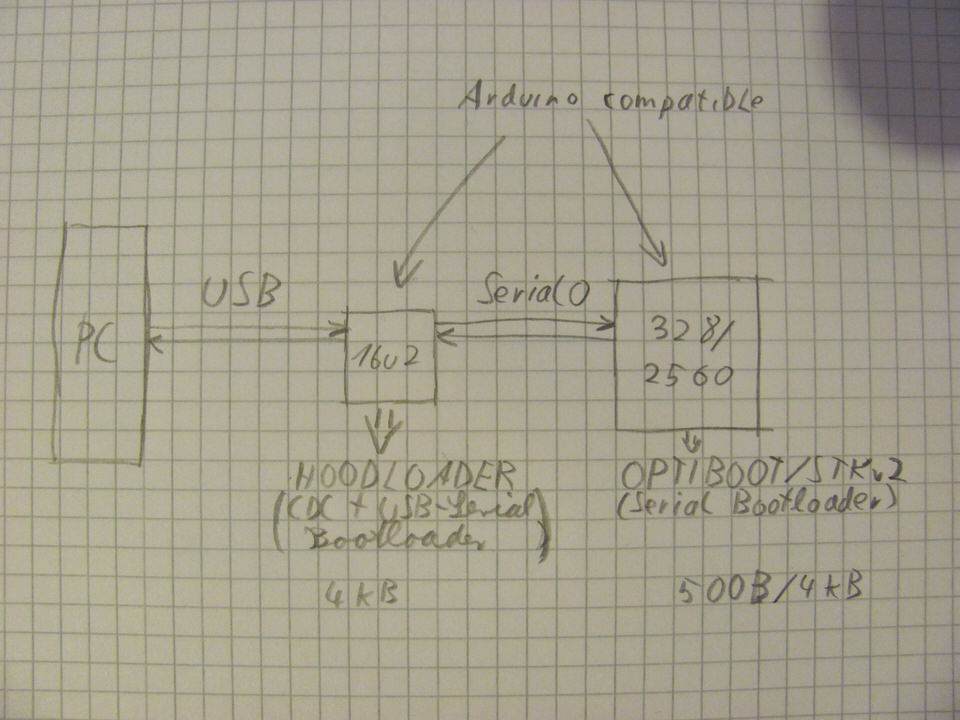 Arduino compatible
USB
Serial0
PC
16u2
328/
2560
HOODLOADER
(CDC + USB-Serial
Bootloader)
OPTIBOOT/STKv2
(Serial Bootloader)
4kB
500B/4kB